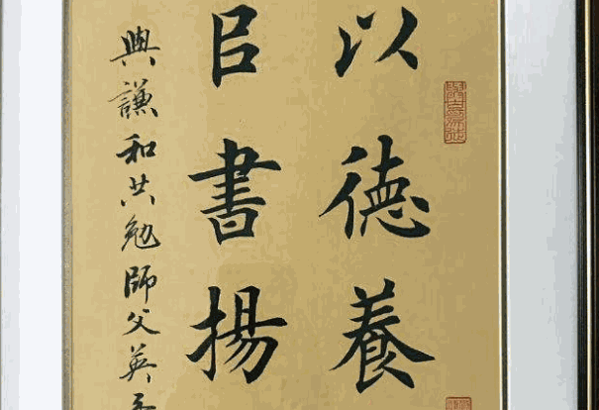 以德養
㠯書揚
與謙和共勉師父英